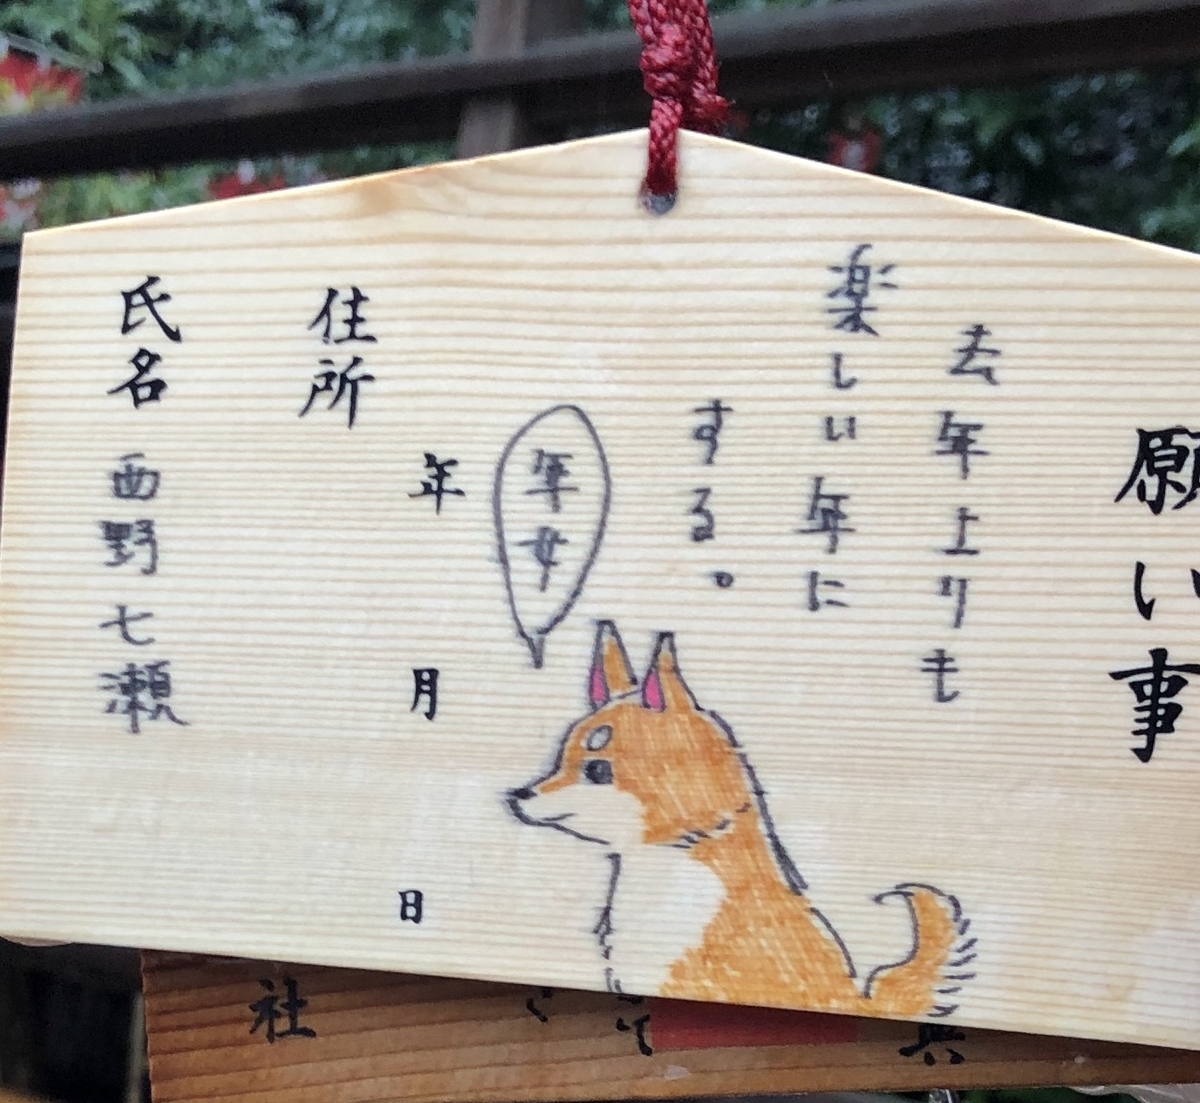 願い事
去年よりも
楽しい年に
する。
年女
年 月 日
住所
氏名 西野 七瀬
社